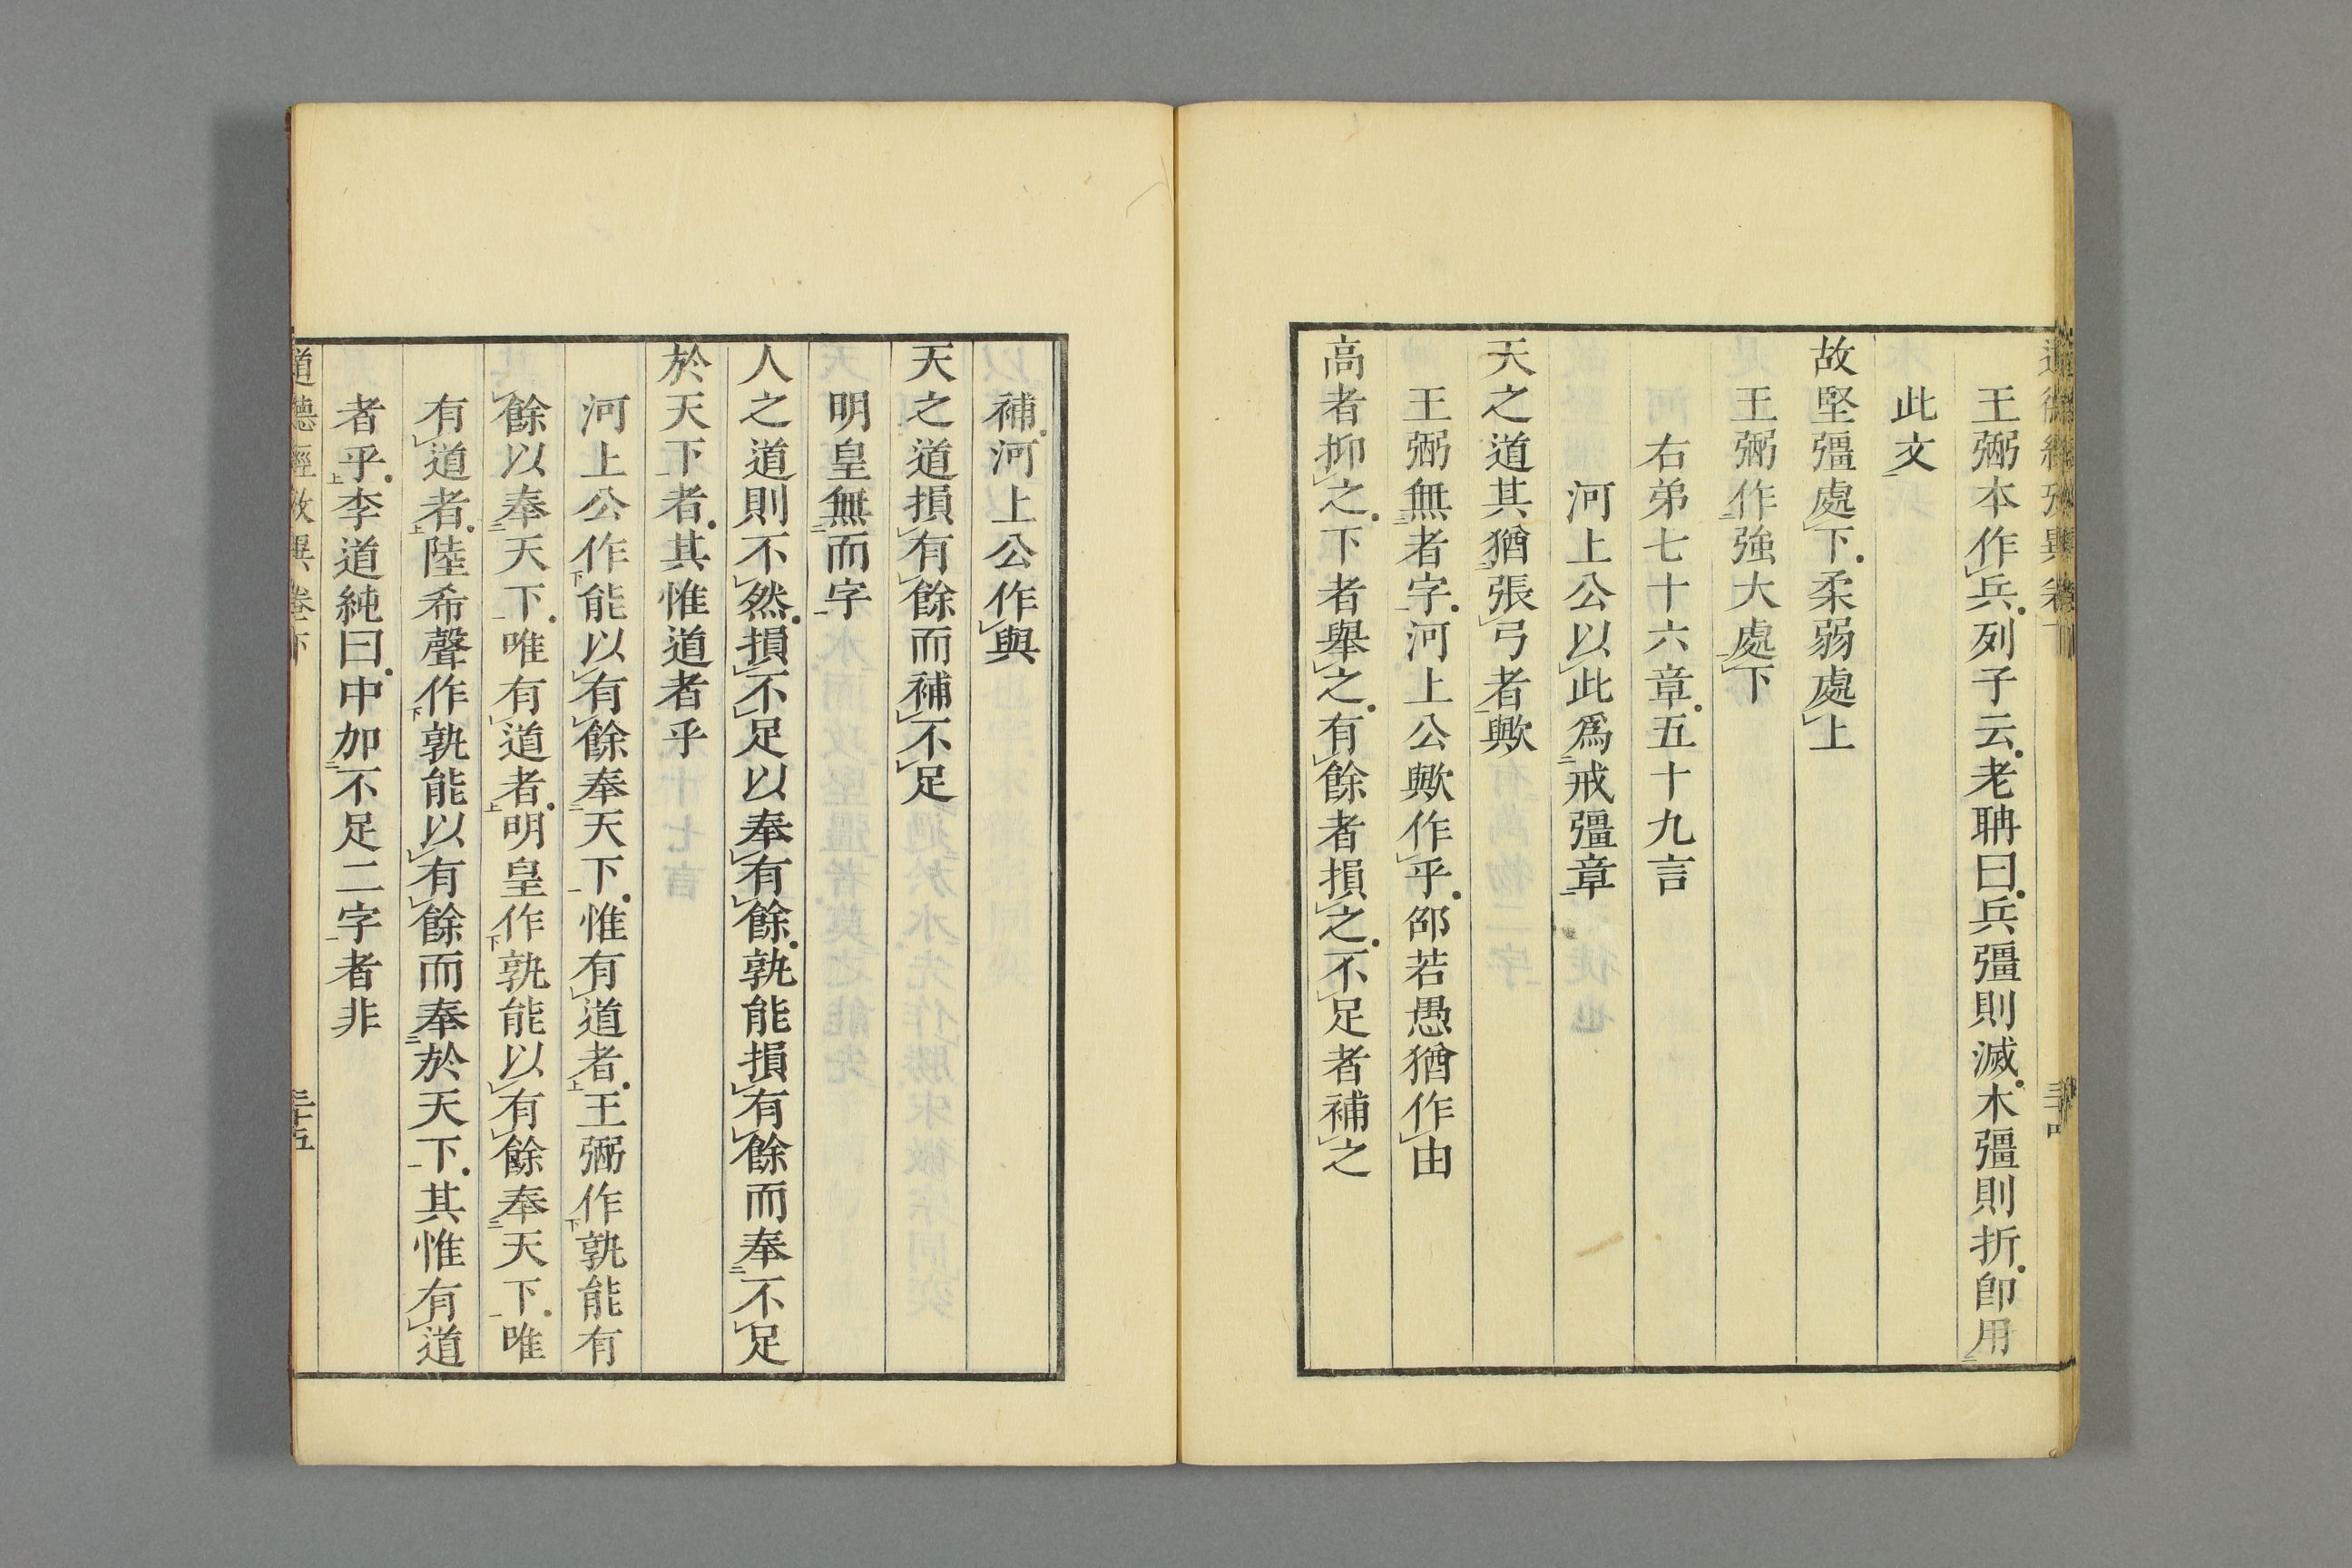 王弼本作兵列子云老聃曰兵彊則滅木彊則折卽用
此文
故堅彊處下柔弱處上
王弼作強大處下
右弟七十六章五十九言
河上公以此爲戒彊章
天之道其猶張弓者歟
王弼無者字河上公歟作乎邵若愚猶作由
高者抑之下者舉之有餘者損之不足者補之
補河上公作與
天之道損有餘而補不足
明皇無而字
人之道則不然損不足以奉有餘孰能損有餘而奉不足
於天下者其惟道者乎
河上公作能以有餘奉天下惟有道者王弼作孰能有
餘以奉天下唯有道者明皇作孰能以有餘奉天下唯
有道者陸希聲作孰能以有餘而奉於天下其惟有道
者乎李道純曰中加不足二字者非
道德經攷異卷下
三十五